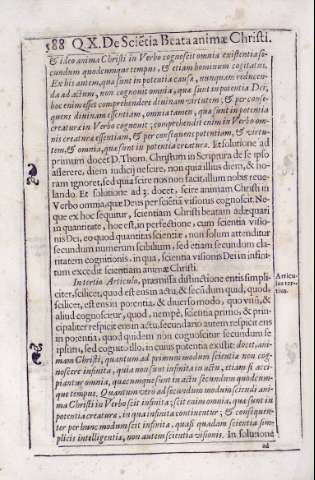 588 Q.X. De Sciētia Beata animæ Christi.
& ideo anima Christi in Verbo cognoscit omnia existentia se-
cundum quodcumque tempus, & etiam hominum cogitatus.
Ex his autem, quæ sunt in potentia causæ, nunquam reducen-
da ad actum, non cognovit omnia, quæ sunt in potentia Dei,
hoc enim esset comprehendere divinam virtutem; & per conse-
quens divinam essentiam, omnia tamen, quæ sunt in potentia
creaturæ in Verbo cognovit; comprehendit enim in Verbo om-
nis creaturæ essentiam, & per consequens potentiam, & virtu-
tem, & omnia, quæ sunt in potentia creaturæ. Et solutione ad
primum docet D. Thom. Christum in Scriptura de se ipso
asserere, diem iudicij nescire, non quia illius diem, & ho-
ram ignoret, sed quia scire nos non facit, illum nobis reve-
lando. Et solutione ad 3. docet, scire animam Christi in
Verbo omnia, quæ Deus per sciētiā visionis cognoscit. Ne-
que ex hoc sequitur, scientiam Christi beatam adæquari
in quantitate, hoc est, in perfectione, cum scientia visio-
nis Dei, eo quod quantitas scientiæ, non solum attenditur
secundum numerum scibilium, sed etiam secundum cla-
ritatem cognitionis, in qua, scientia visionis Dei in infini-
tum excedit scientiam animæ Christi.
In tertio Articulo, præmissa distinctione entis simpli-
citer, scilicet, quod est ens in actu, & secundum quid, quod,
scilicet, est ens in potentia, & diverso modo, quo vnū, &
aliud cognoscitur, quod, nempè, scientia primo, & prin-
cipaliter respicit ens in actu, secundario autem respicit ens
in potentia, quod quidem non cognoscitur secundum se
ipsum, sed cognito illo, in cuius potentia existit: docet, ani-
mam Christi, quantum ad primum modum scientiæ non cog-
noscere infinita, quia non sunt infinita in actu, etiam si acci-
piantur omnia, quæcumque sunt in actu secundum quodcum-
que tempus. Quantum verò ad secundum modum sciendi ani-
ma Christi in Verbo scit infinita; scit enim omnia, quæ sunt in
potentia creaturæ, in qua infinita continentur; & consequen-
ter per hunc modum scit infinita, quasi quadam scientia sim-
plicis intelligentiæ, non autem scientia visionis. In solutione
ad
Articu-
lus ter-
tius.